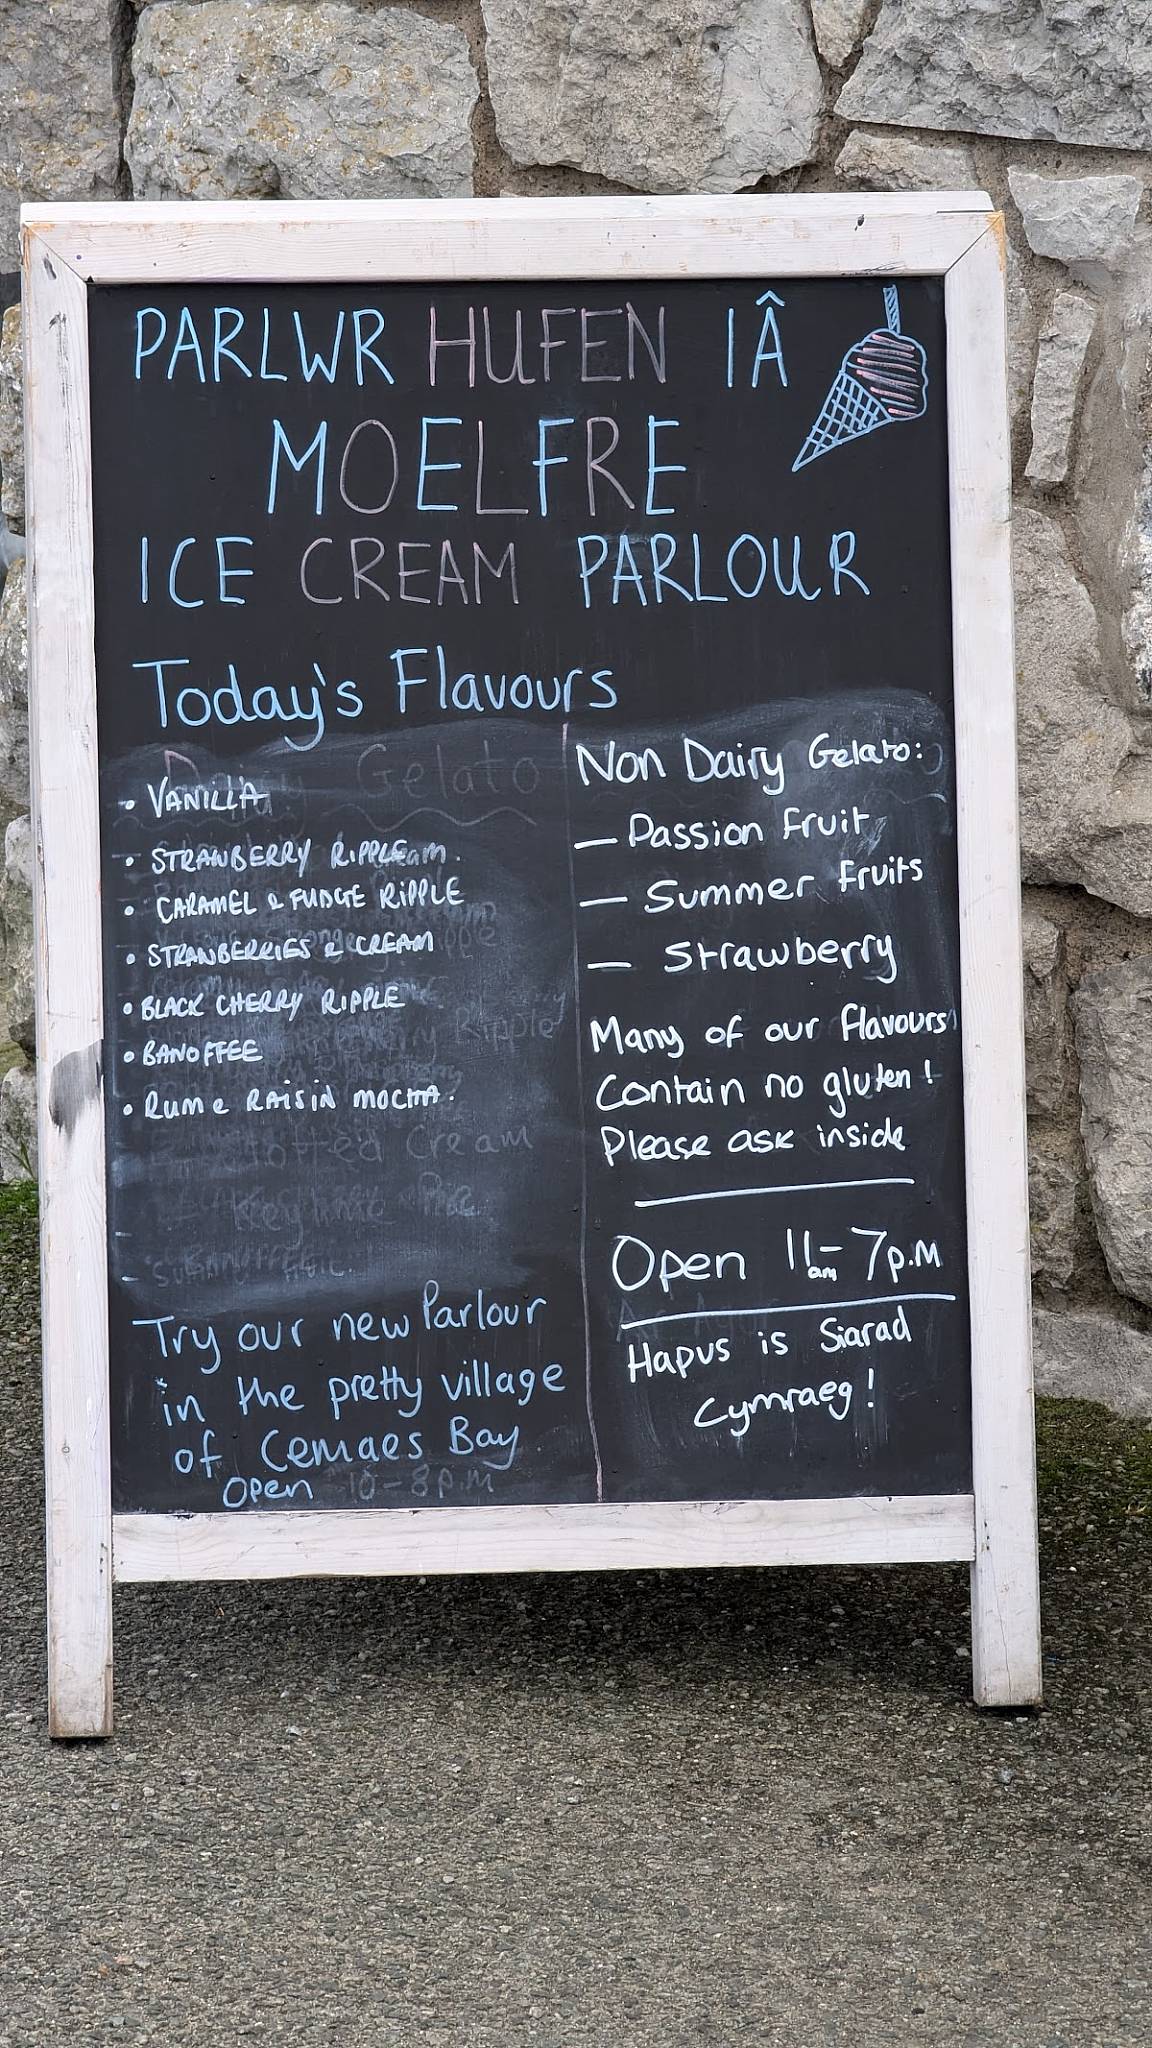 PARLWR HUFEN IÂ
MOELFRE
ICE CREAM PARLOUR
Today's Flavours
Dairy Gelato
• VANILLA
• STRAWBERRY RIPPLE
• CARAMEL & FUDGE RIPPLE
• STRAWBERRIES & CREAM
• BLACK CHERRY RIPPLE
• BANOFFEE
• RUM & RAISIN MOCHA.
Try our new Parlour
in the pretty village
of Cemaes Bay
Open 10-8p.m
Non Dairy Gelato:
— Passion fruit
— Summer fruits
— Strawberry
Many of our flavours
Contain no gluten!
Please ask inside
Open 11am- 7p.m
Hapus is Siarad
Cymraeg!